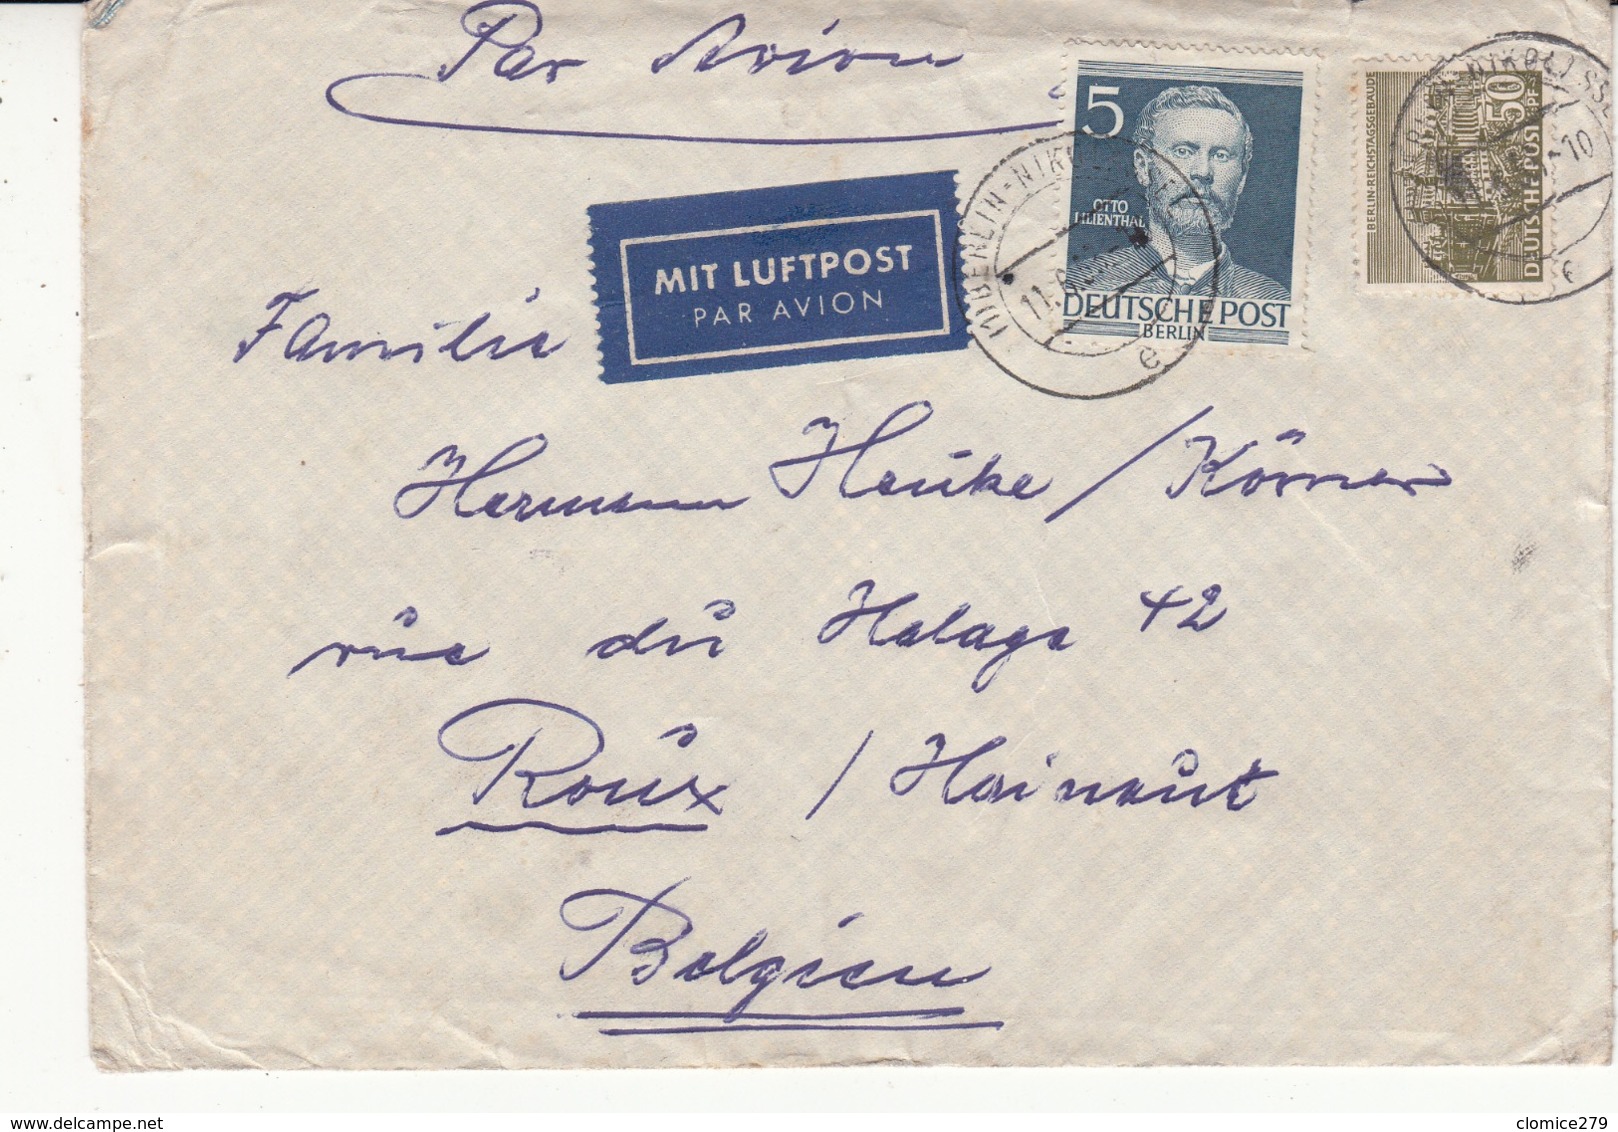 Par Avion
MIT LUFTPOST
PAR AVION
5
OTTO
LILIENTHAL
DEUTSCHE POST
BERLIN
BERLIN-REICHSTAGSGEBÄUDE
50
PF
DEUTSCHE POST
(1) BERLIN-NIKOLASSEE
11.
e
10
e
Familie
Hermann Heuke / Körner
rue du Halage 42
Roux / Hainaut
Belgien
clomice279